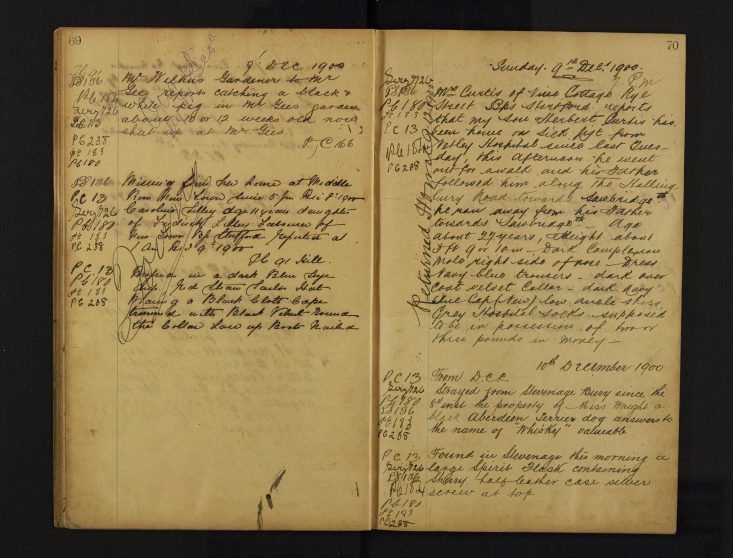 69
9 Dec 1900
Mr Wilkins Gardener to Mr
Gee reports catching a black &
white pig in Mr Gees garden
about 10 or 12 weeks old now
shut up at Mr Gees.
PC 166
PC 13
PC 180
PC 238
Missing from her home at Middle
Row New Town since 5 pm Dec 8th 1900
Caroline Lilley age 11 years daughter
of Lilley Labourer of
New Town Bps Stortford reported at
1 am 9th 1900
PC 91 Hill
Dressed in a dark Blue Serge
dress, Red Straw Sailor Hat
Wearing a Black Cloth Cape
trimmed with Black Velvet Round
the Collar Lace up Boots Nailed
70
Sunday 9th Decr 1900
7 P.m
Serg 726
PC 136
PC 180
PC 13
PC 238
Mrs Curtis of Vine Cottage Rye
Street Bps Stortford reports
that my Son Herbert Curtis has
been home on Sick Lgt from
Netley Hospital since last Tues-
day, this afternoon he went
out for a walk and his Father
followed him along the Halling-
bury Road towards Sawbridgeth
he ran away from his Father
towards Sawbridge - Age
about 29 years, Height about
5 ft 9 or 10 in - Dark Complexion
Mole right side of nose - Dress
Navy blue trousers - dark over
Coat velvet Collar - dark Navy
blue Cap (New) low ankle shoes,
Grey Hospital Socks - supposed
to be in possession of two or
three pounds in money -
Returned Home
10th December 1900
PC 13
Serg 726
PC 180
PC 136
PC 238
From D.C.C
Strayed from Stevenage Bury since the
8th inst the property of Miss Wright a
black Aberdeen Terrier dog answers to
the name of "Whisky" valuable
PC 13
Serg 726
PC 136
PC 180
PC 238
Found in Stevenage this morning a
large Spirit Flask containing
Sherry half leather case silver
screw at top.